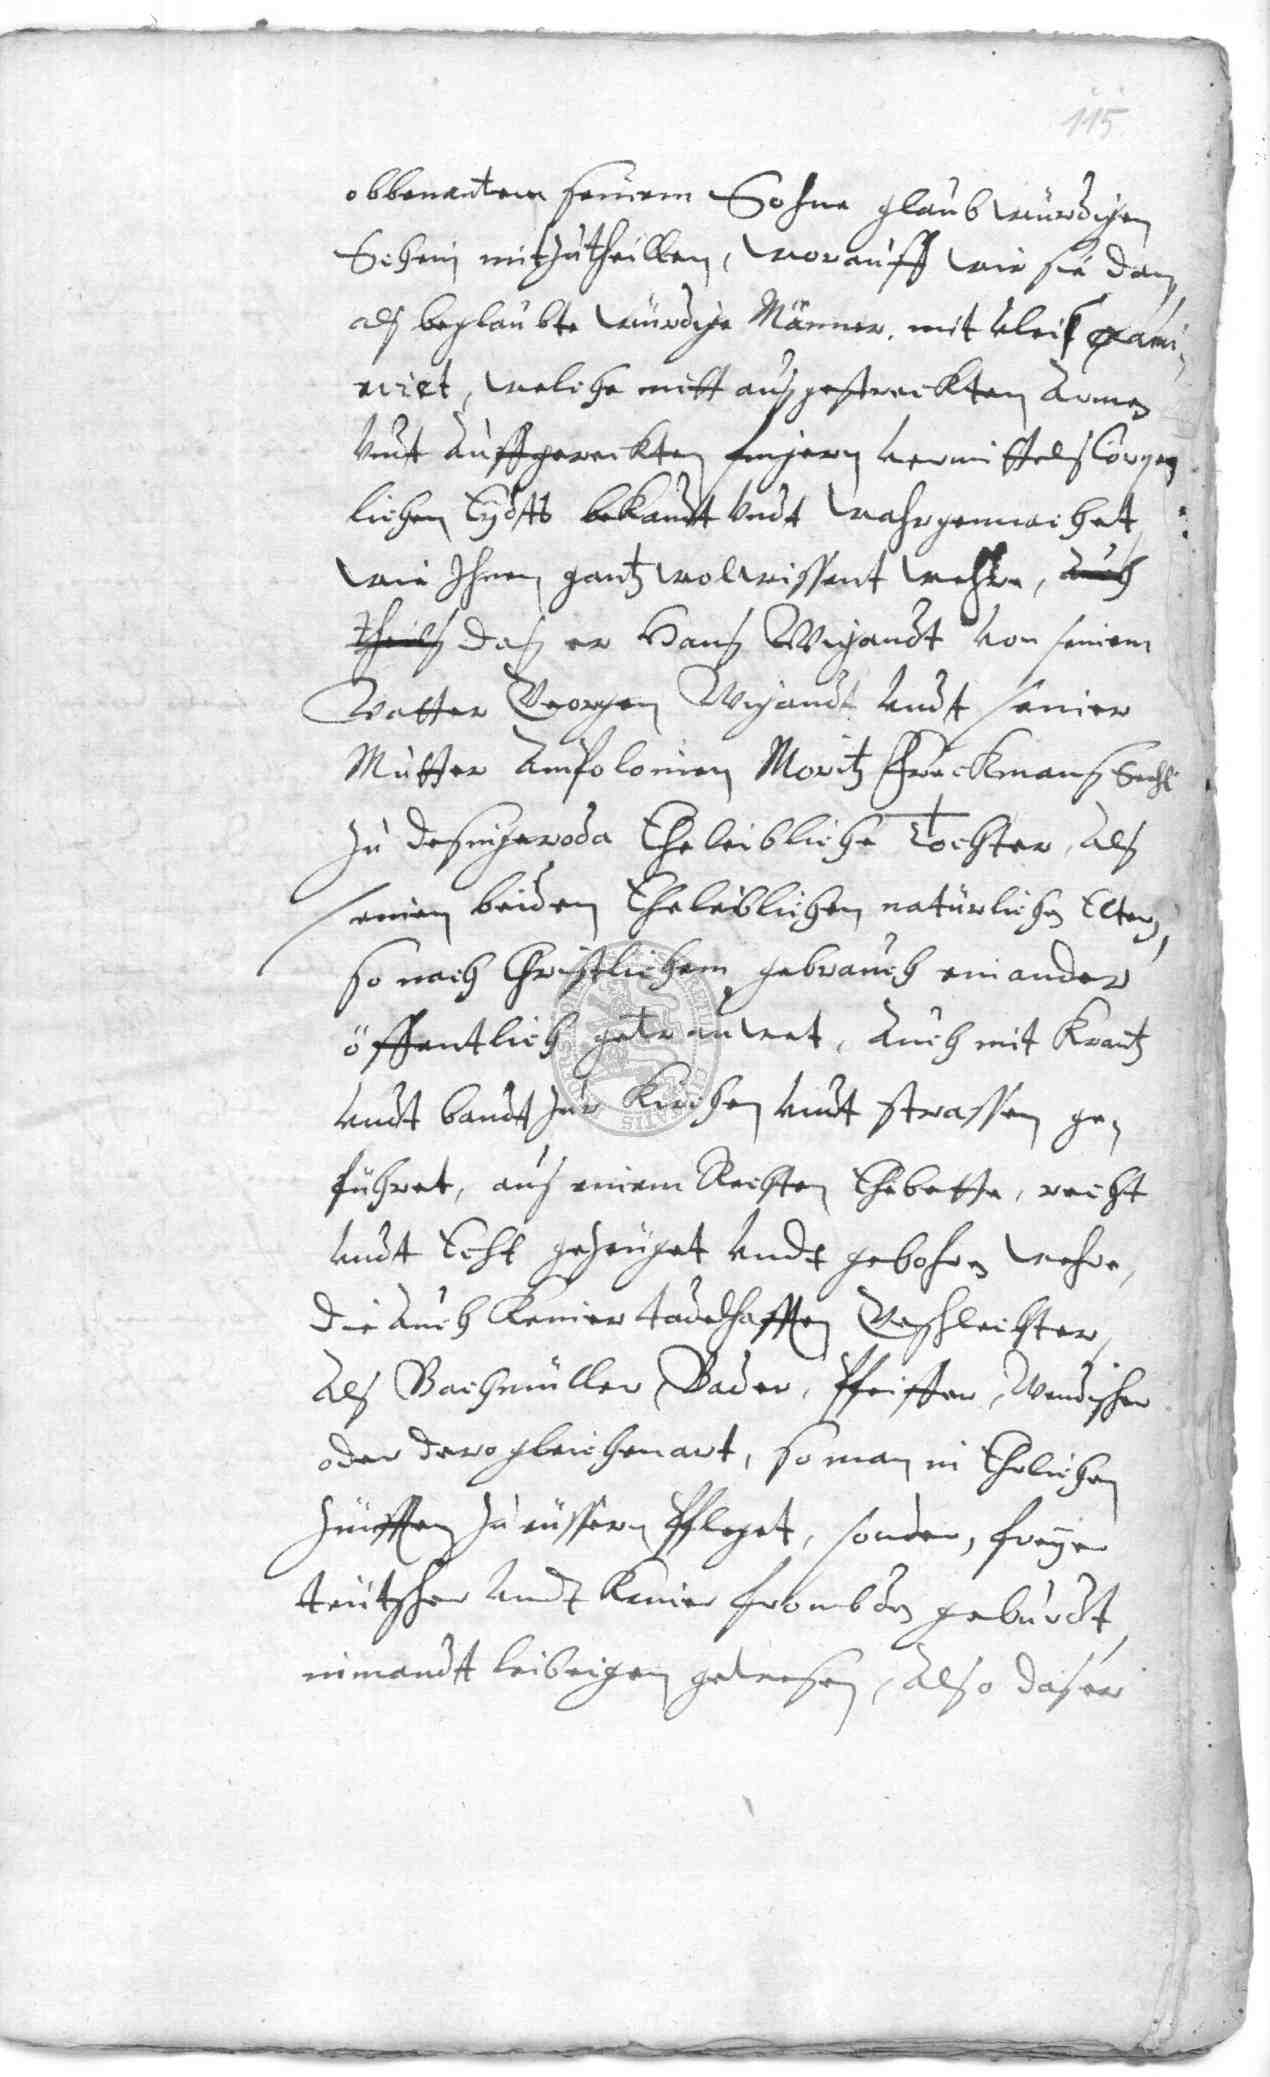 115
obbenantem seinem Sohne glaubwürdigen
Schein mitzutheillen, worauff wir sie dan
als beglaubte würdige Männer, mit vleis exami-
niret, welche mitt ausgestreckten Armen
Undt Auffgereckten fingern vermittels Cörper
lichen Eydtß bekandt Undt wahrgemachet,
wie Ihnen gantz wolwissent wehre, auch
theils das er Hans Wigandt von seinem
Vatter Georgen Wigandt Undt seiner
Mutter Moritz Sehl
zu Desingeroda Eheleibliche Tochter, als
seinen beiden Eheleiblichen natürlichen Eltern,
so nach Christlichem gebrauch einander
öffentlich getrauwet, Auch mit Krantz
Undt bandt zur Kirchen Undt strassen ge-
führet, aus einem Rechten Ehebette, recht
Undt Echt gezeuget Undt gebohren wehre,
die Auch Keiner tadelhafften Geschlechter,
Als Bachmüller, Bader, Pfeiffer, Wendischer
oder derogleichenart, so man in Ehrlichen
Zünfften zu eüssern Pfleget, sondern, freyer
teütscher Undt Keiner frombden geburdt
nimandt leibeigen gewesen, Also das er